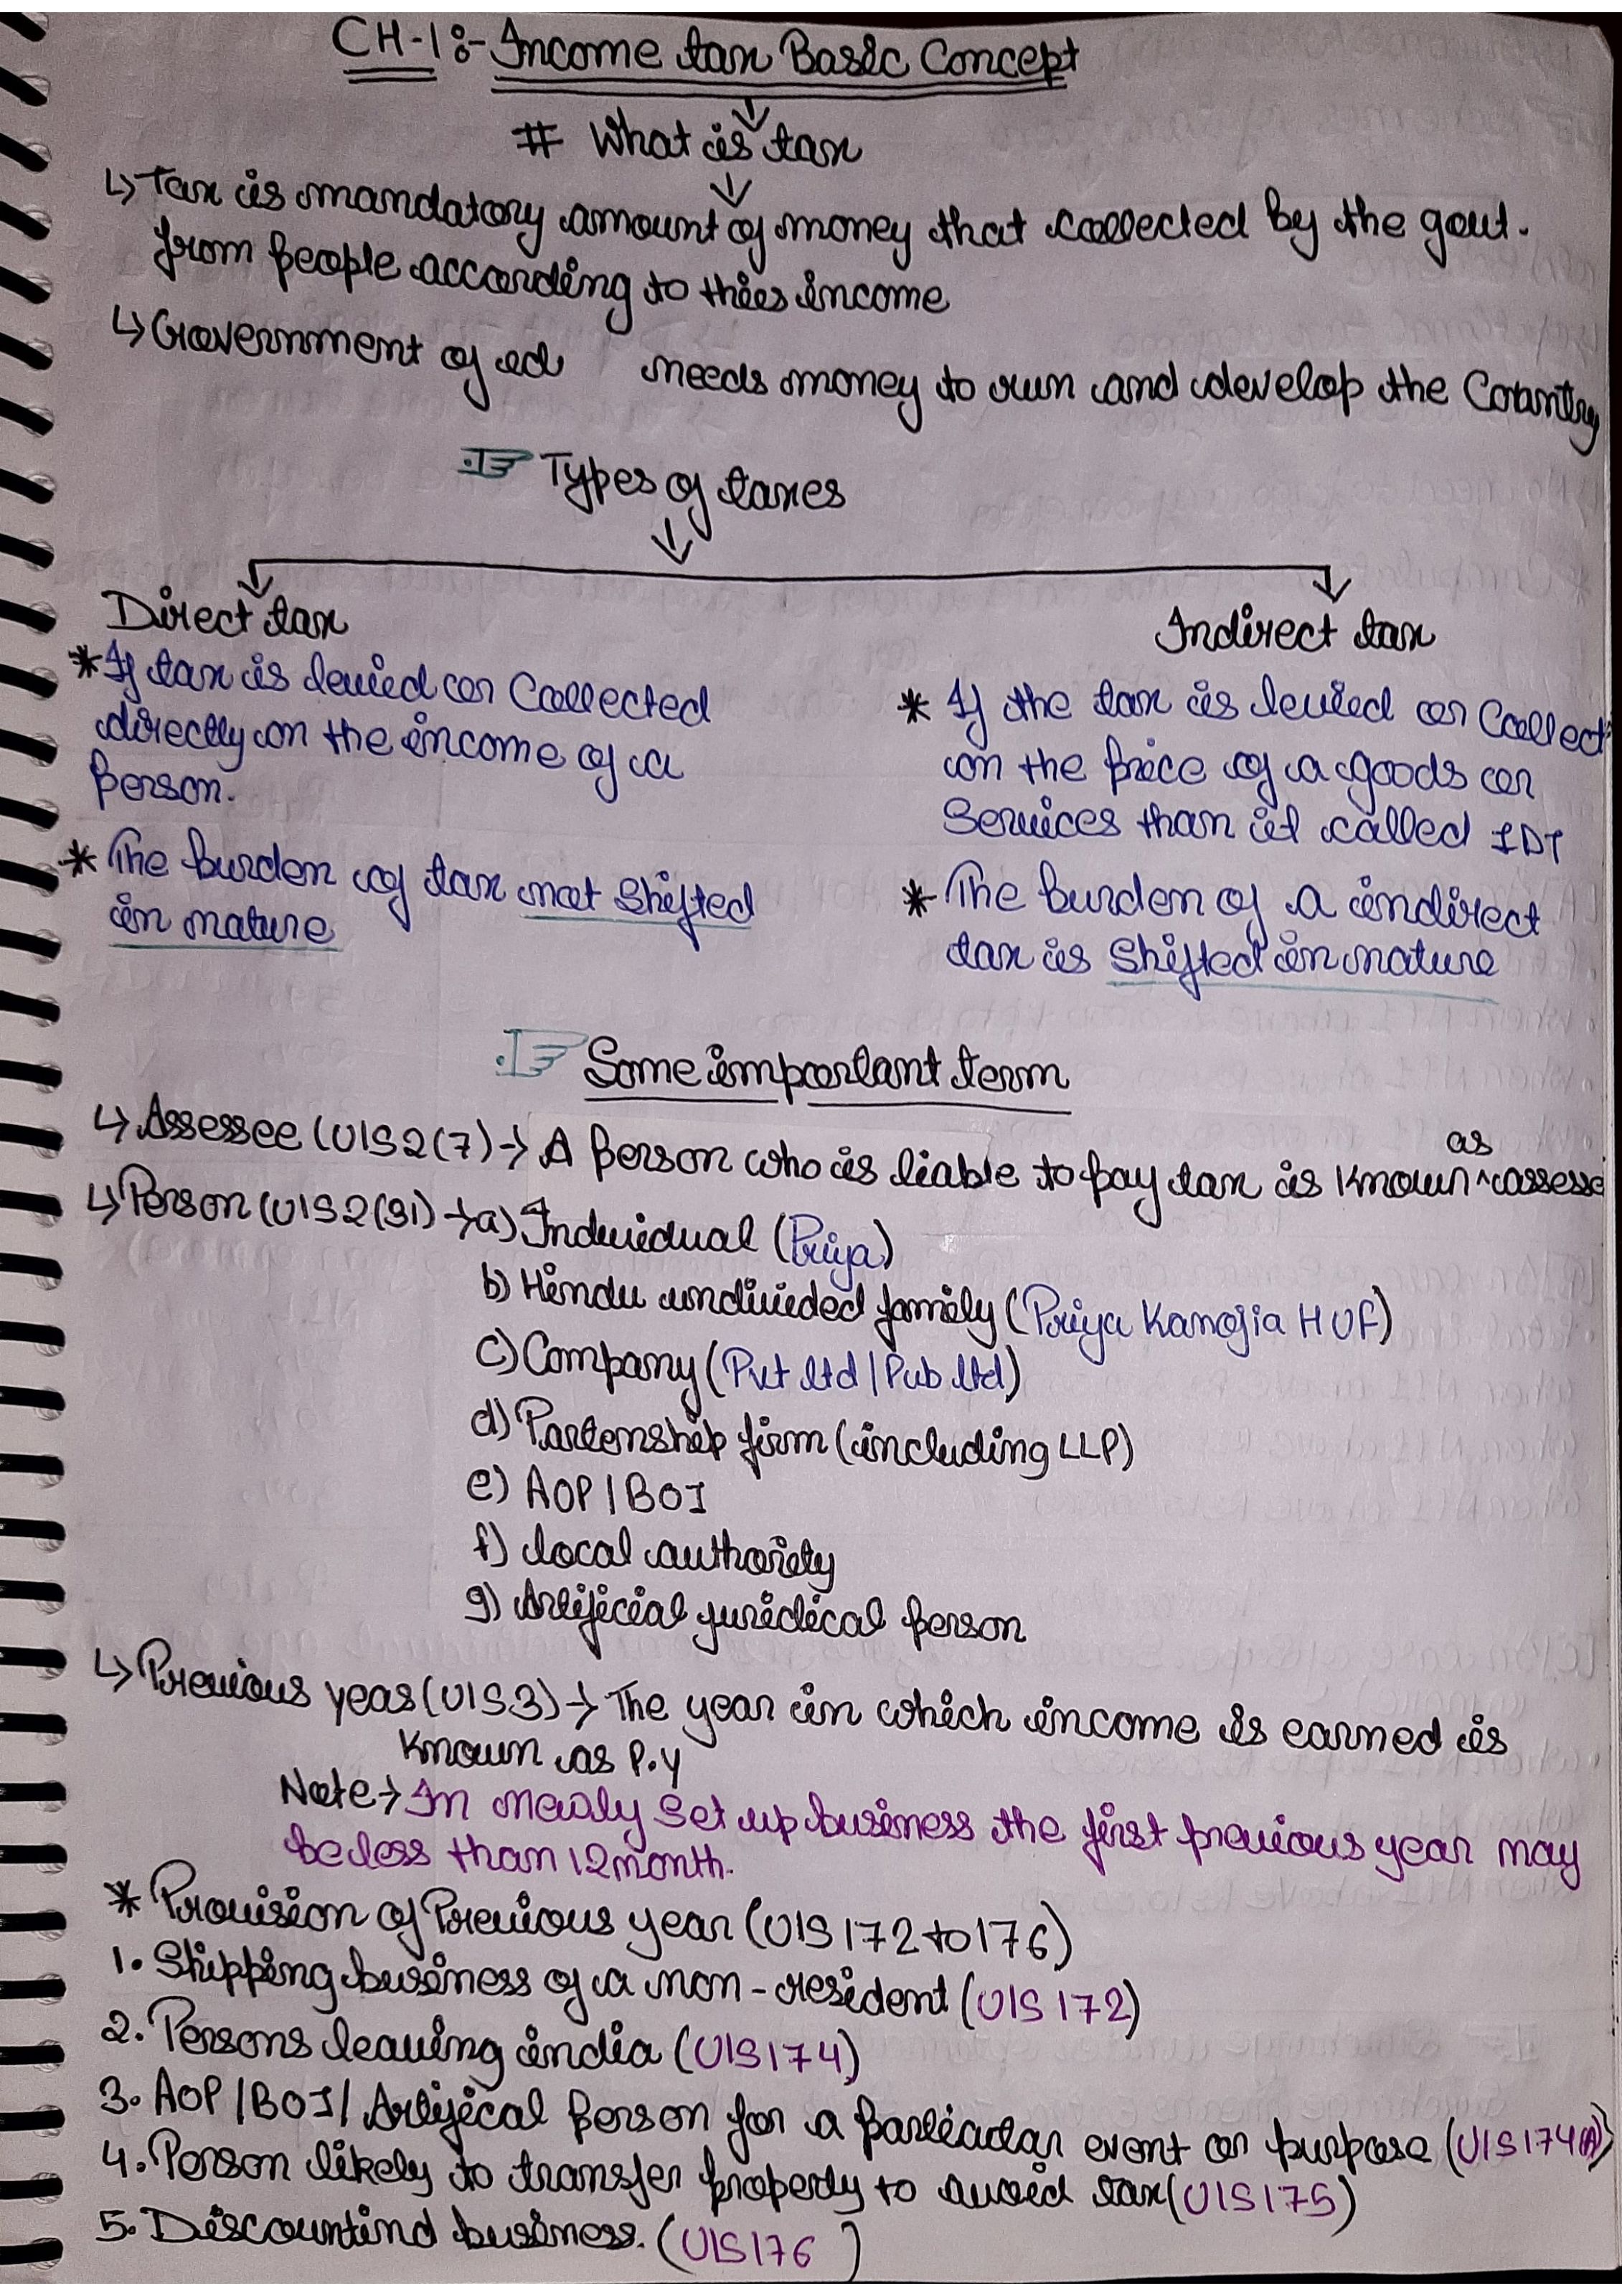 CH-1:- Income tax Basic Concept
# What is tax
↳ Tax is mandatory amount of money that collected by the govt.
from people according to thier income
↳ Government of needs money to run and develop the Country
Types of taxes
Direct tax
* If tax is levied or Collected
directly on the income of a
Person.
* The burden of tax not Shifted
in nature
Indirect tax
* If the tax is levied or Collect
on the price of a goods or
Services than it called IDT
* The burden of a indirect
tax is Shifted in nature
Some important term
↳ Assessee (U/S 2(7) → A Person who is liable to pay tax is Known as assesse
↳ Person (U/S 2(31) → a) Individual (Priya)
b) Hindu undivided family (Priya Kanojia HUF)
c) Company (Pvt ltd | Pub ltd)
d) Partenship firm (including LLP)
e) AOP | BOI
f) local authority
g) Artificial juridical person
↳ Previous year (U/S 3) → The year in which income is earned is
Known as P.Y
Note → In newly Set up business the first previous year may
be less than 12 month.
* Provision of Previous year (U/S 172 to 176)
1. Shipping business of a non-resident (U/S 172)
2. Persons leaving india (U/S 174)
3. AOP / BOI / Artifical Person for a particular event or purpose (U/S 174(A))
4. Person likely to transfer property to avoid tax (U/S 175)
5. Discountind business. (U/S 176)